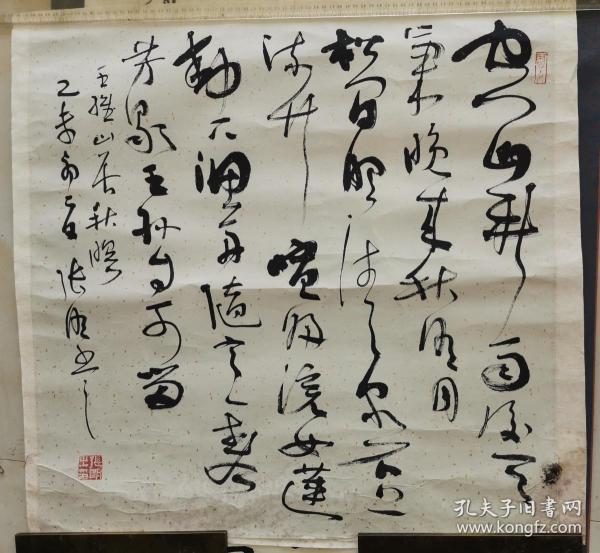 空山新雨後天
氣晚来秋明月
松间照清泉石上
流竹喧归浣女蓮
動下漁舟隨意春
芳歇王孙自可留
王維山居秋暝
乙未
孔夫子旧书网
www.kongfz.com